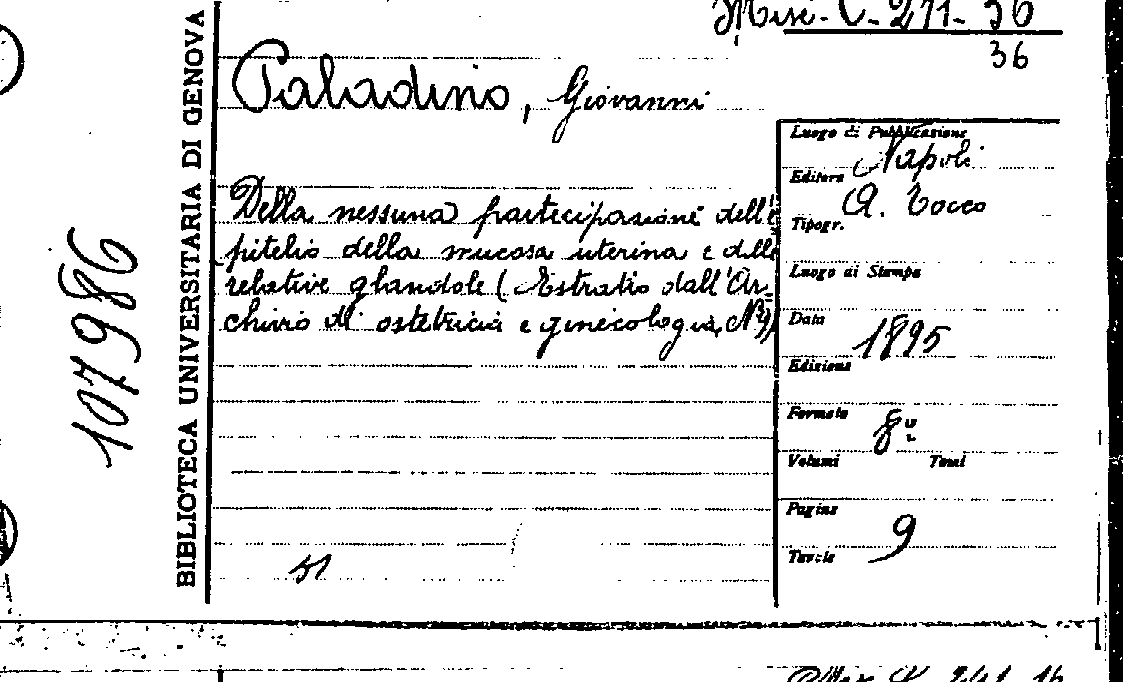 Misc. C. 271. 36
36
Paladino, Giovanni
Della nessuna partecipazione dell'e
pitelio della mucosa uterina e delle
relative glandole (Estratto dall'Ar
chivio di ostetricia e ginecologia, N°9)
51
BIBLIOTECA UNIVERSITARIA DI GENOVA
107986
Luogo di Pubblicazione
Napoli
Editore
A. Tocco
Tipogr.
Luogo di Stampa
Data
1895
Edizione
Formato
8º
Volumi Tomi
Pagine
9
Tavole